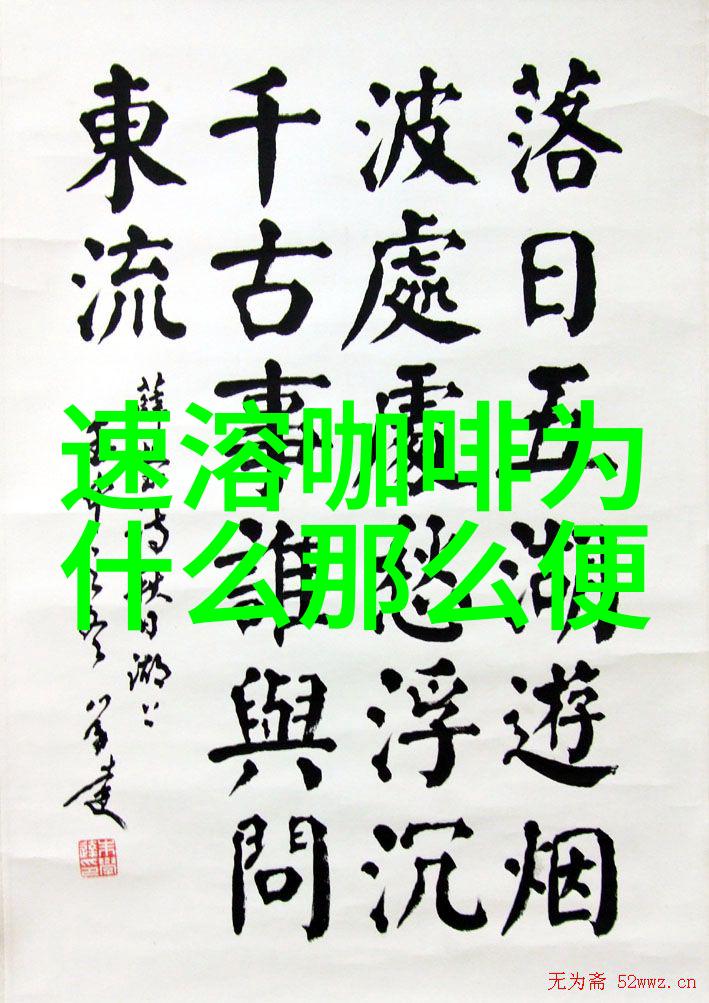 落日五湖遊烟
波處處愁浮沉
千古事誰與問
東流
秋日湖上
速溶咖啡为
什么那么便
无为斋 52wwz.cn